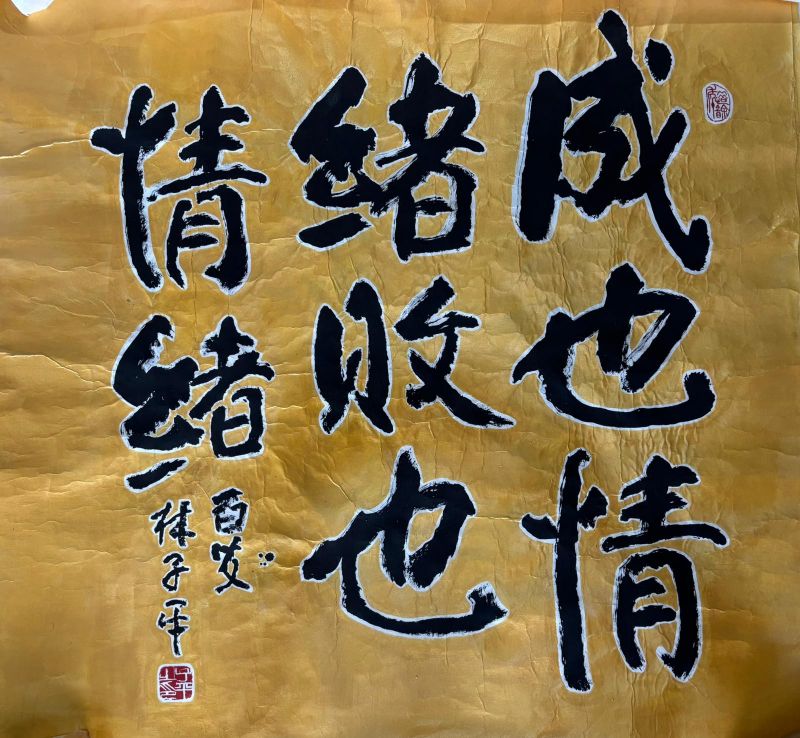 成也情
绪败也
情绪
林子平